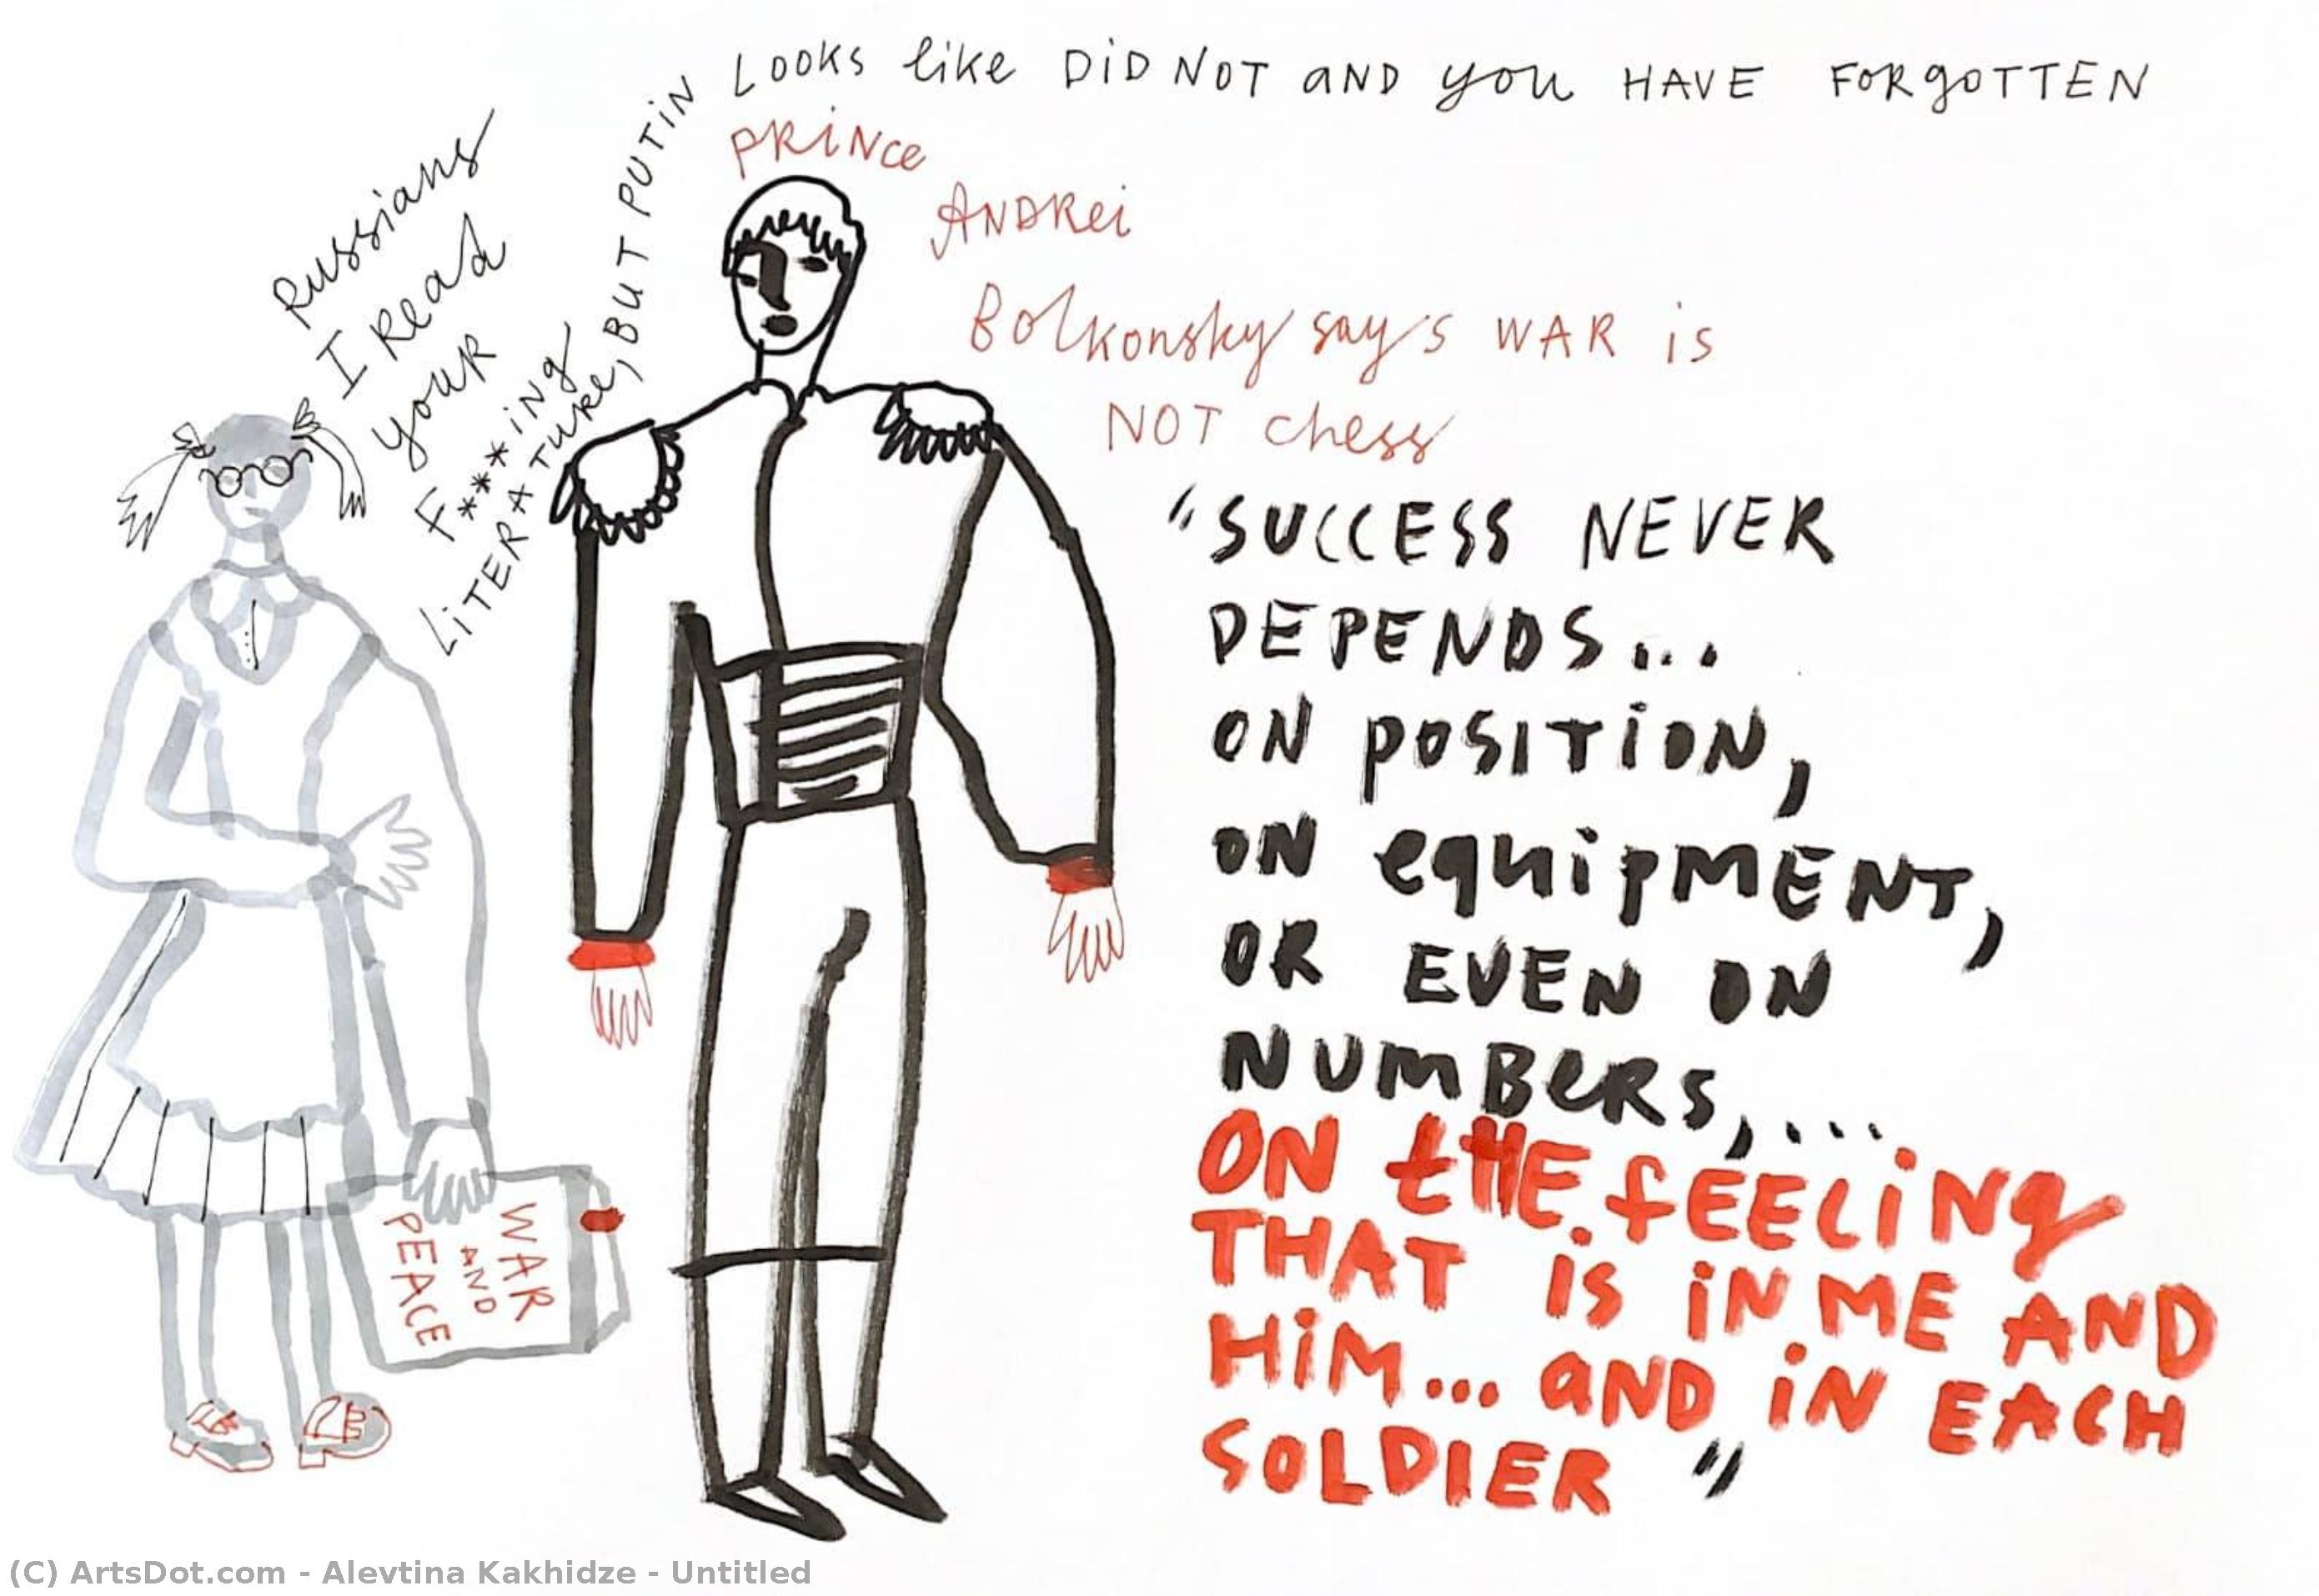 Russians
I Read
your
F***iNg
LiTERATURE, BUT PUTiN
LOOKS like DiD NOT aND you HAVE FORgOTTEN
PRiNce
ANDRei
Bolkonsky say's WAR is
NOT chess
"SUCCESS NEVER
DEPENDS...
ON pOSITiON,
ON equipMENT,
OR EVEN ON
NUMBERS,...
ON tHE fEELiNg
THAT iS iN ME AND
HiM... aND iN EACH
SOLDIER"
WAR
AND
PEACE
(C) ArtsDot.com - Alevtina Kakhidze - Untitled